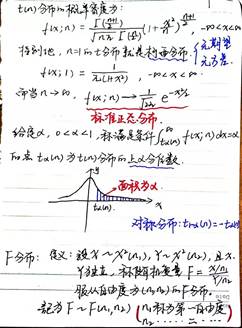 t(n)分布的概率密度为:
f(x;n) = Γ(n+1/2) / √nπ Γ(n/2) (1+x²/n)^-(n+1)/2, -∞<x<∞
特别地, n=1的t分布就是柯西分布.
f(x;1) = 1/π(1+x²), -∞<x<∞.
{无期望 无方差.
而当 n→∞, f(x;n) → 1/√2π e^-x²/2
标准正态分布.
给定α, 0<α<1, 称满足条件∫_{tα(n)}^∞ f(x;n)dx=α
的点 tα(n) 为 t(n)分布的上α分位数.
y
面积为α.
tα(n)
x
对称分布: t1-α(n)=-tα(n)
F分布: 定义: 设 X~χ²(n1), Y~χ²(n2), 且X,
Y独立, 称随机变量 F = X/n1 / Y/n2
服从自由度为(n1,n2)的F分布.
记为 F~F(n1,n2) (n1称为第一自由度
n2 …… 二 ……)